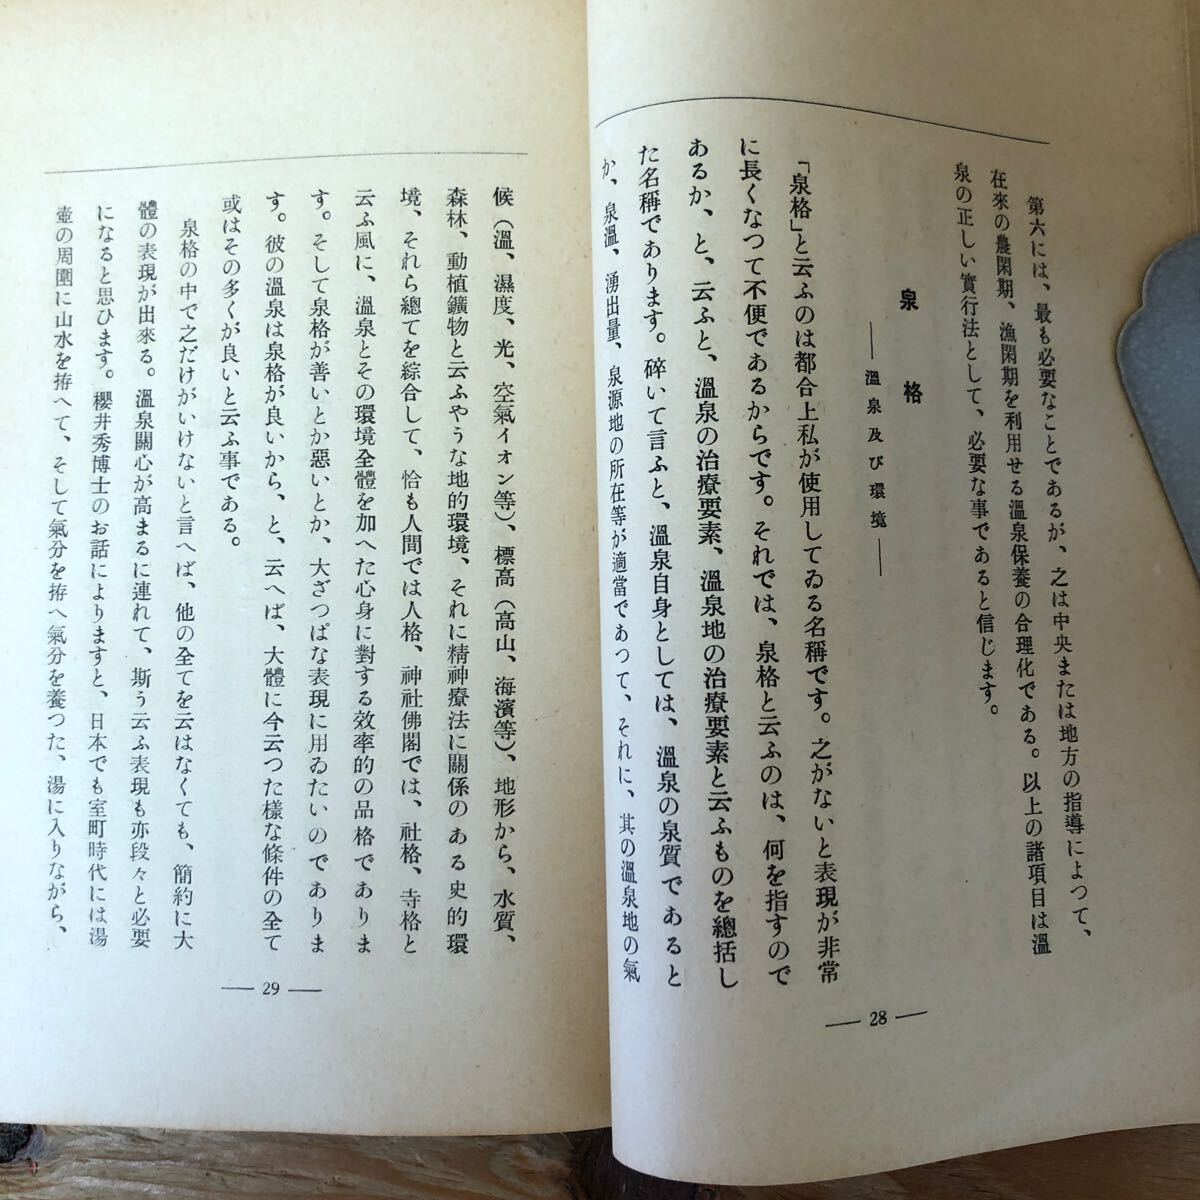 第六には、最も必要なことであるが、之は中央または地方の指導によつて、
在來の農閑期、漁閑期を利用せる溫泉保養の合理化である。以上の諸項目は溫
泉の正しい實行法として、必要な事であると信じます。
泉格
――溫泉及び環境――
「泉格」と云ふのは都合上私が使用してゐる名稱です。之がないと表現が非常
に長くなつて不便であるからです。それでは、泉格と云ふのは、何を指すので
あるか、と、云ふと、溫泉の治療要素、溫泉地の治療要素と云ふものを總括し
た名稱であります。碎いて言ふと、溫泉自身としては、溫泉の泉質であると
か、泉溫、湧出量、泉源地の所在等が適當であつて、それに、其の溫泉地の氣
― 28 ―
候（溫、濕度、光、空氣イオン等）、標高（高山、海濱等）、地形から、水質、
森林、動植鑛物と云ふやうな地的環境、それに精神療法に關係のある史的環
境、それら總てを綜合して、恰も人間では人格、神社佛閣では、社格、寺格と
云ふ風に、溫泉とその環境全體を加へた心身に對する效率的の品格でありま
す。そして泉格が善いとか惡いとか、大ざつぱな表現に用ゐたいのでありま
す。彼の溫泉は泉格が良いから、と、云へば、大體に今云つた樣な條件の全て
或はその多くが良いと云ふ事である。
泉格の中で之だけがいけないと言へば、他の全てを云はなくても、簡約に大
體の表現が出來る。溫泉關心が高まるに連れて、斯う云ふ表現も亦段々と必要
になると思ひます。櫻井秀博士のお話によりますと、日本でも室町時代には湯
壺の周圍に山水を拵へて、そして氣分を拵へ氣分を養つた、湯に入りながら、
― 29 ―